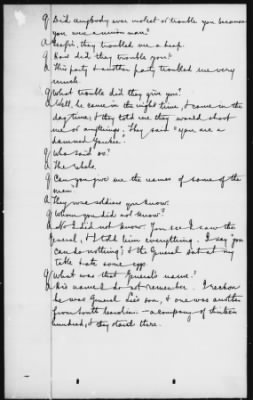 Q Did anybody ever molest or trouble you because
you were a union man?
A Yes sir, they troubled me a heap.
Q How did they trouble you?
A This party & another party troubled me very
much.
Q What trouble did they give you?
A Well, he came in the night time, & came in the
day time, & they told me they would shoot
me or anything. They said "you are a
damned Yankee".
Q Who said so?
A The rebels.
Q Can you give me the names of some of the
men.
A They was soldiers you know.
Q Whom you did not know?
A No I did not know. You see I saw the
General, & I told him everything. I say "you
can do nothing"; & the General sat at my
table & ate some eggs.
Q What was that General's name?
A His name I do not remember. I reckon
he was General Lee's son, & one was another
from South Carolina - a company of thirteen
hundred, & they staid there.